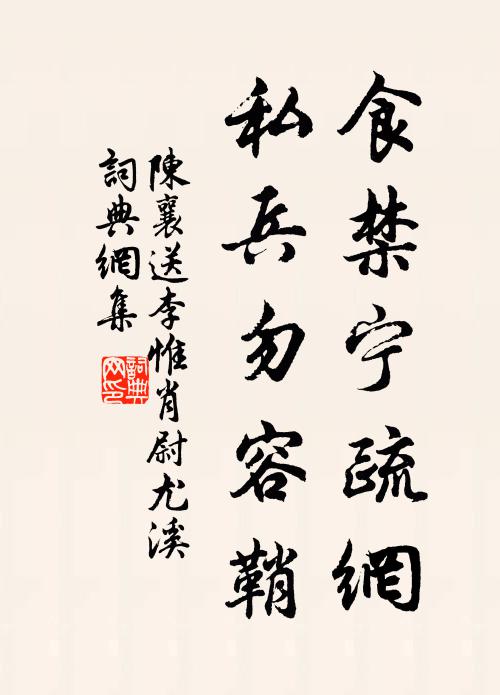 食禁宁疏網
私兵勿容鞘
陳襄送李惟肖尉尤溪
詞典網集
詞典网印